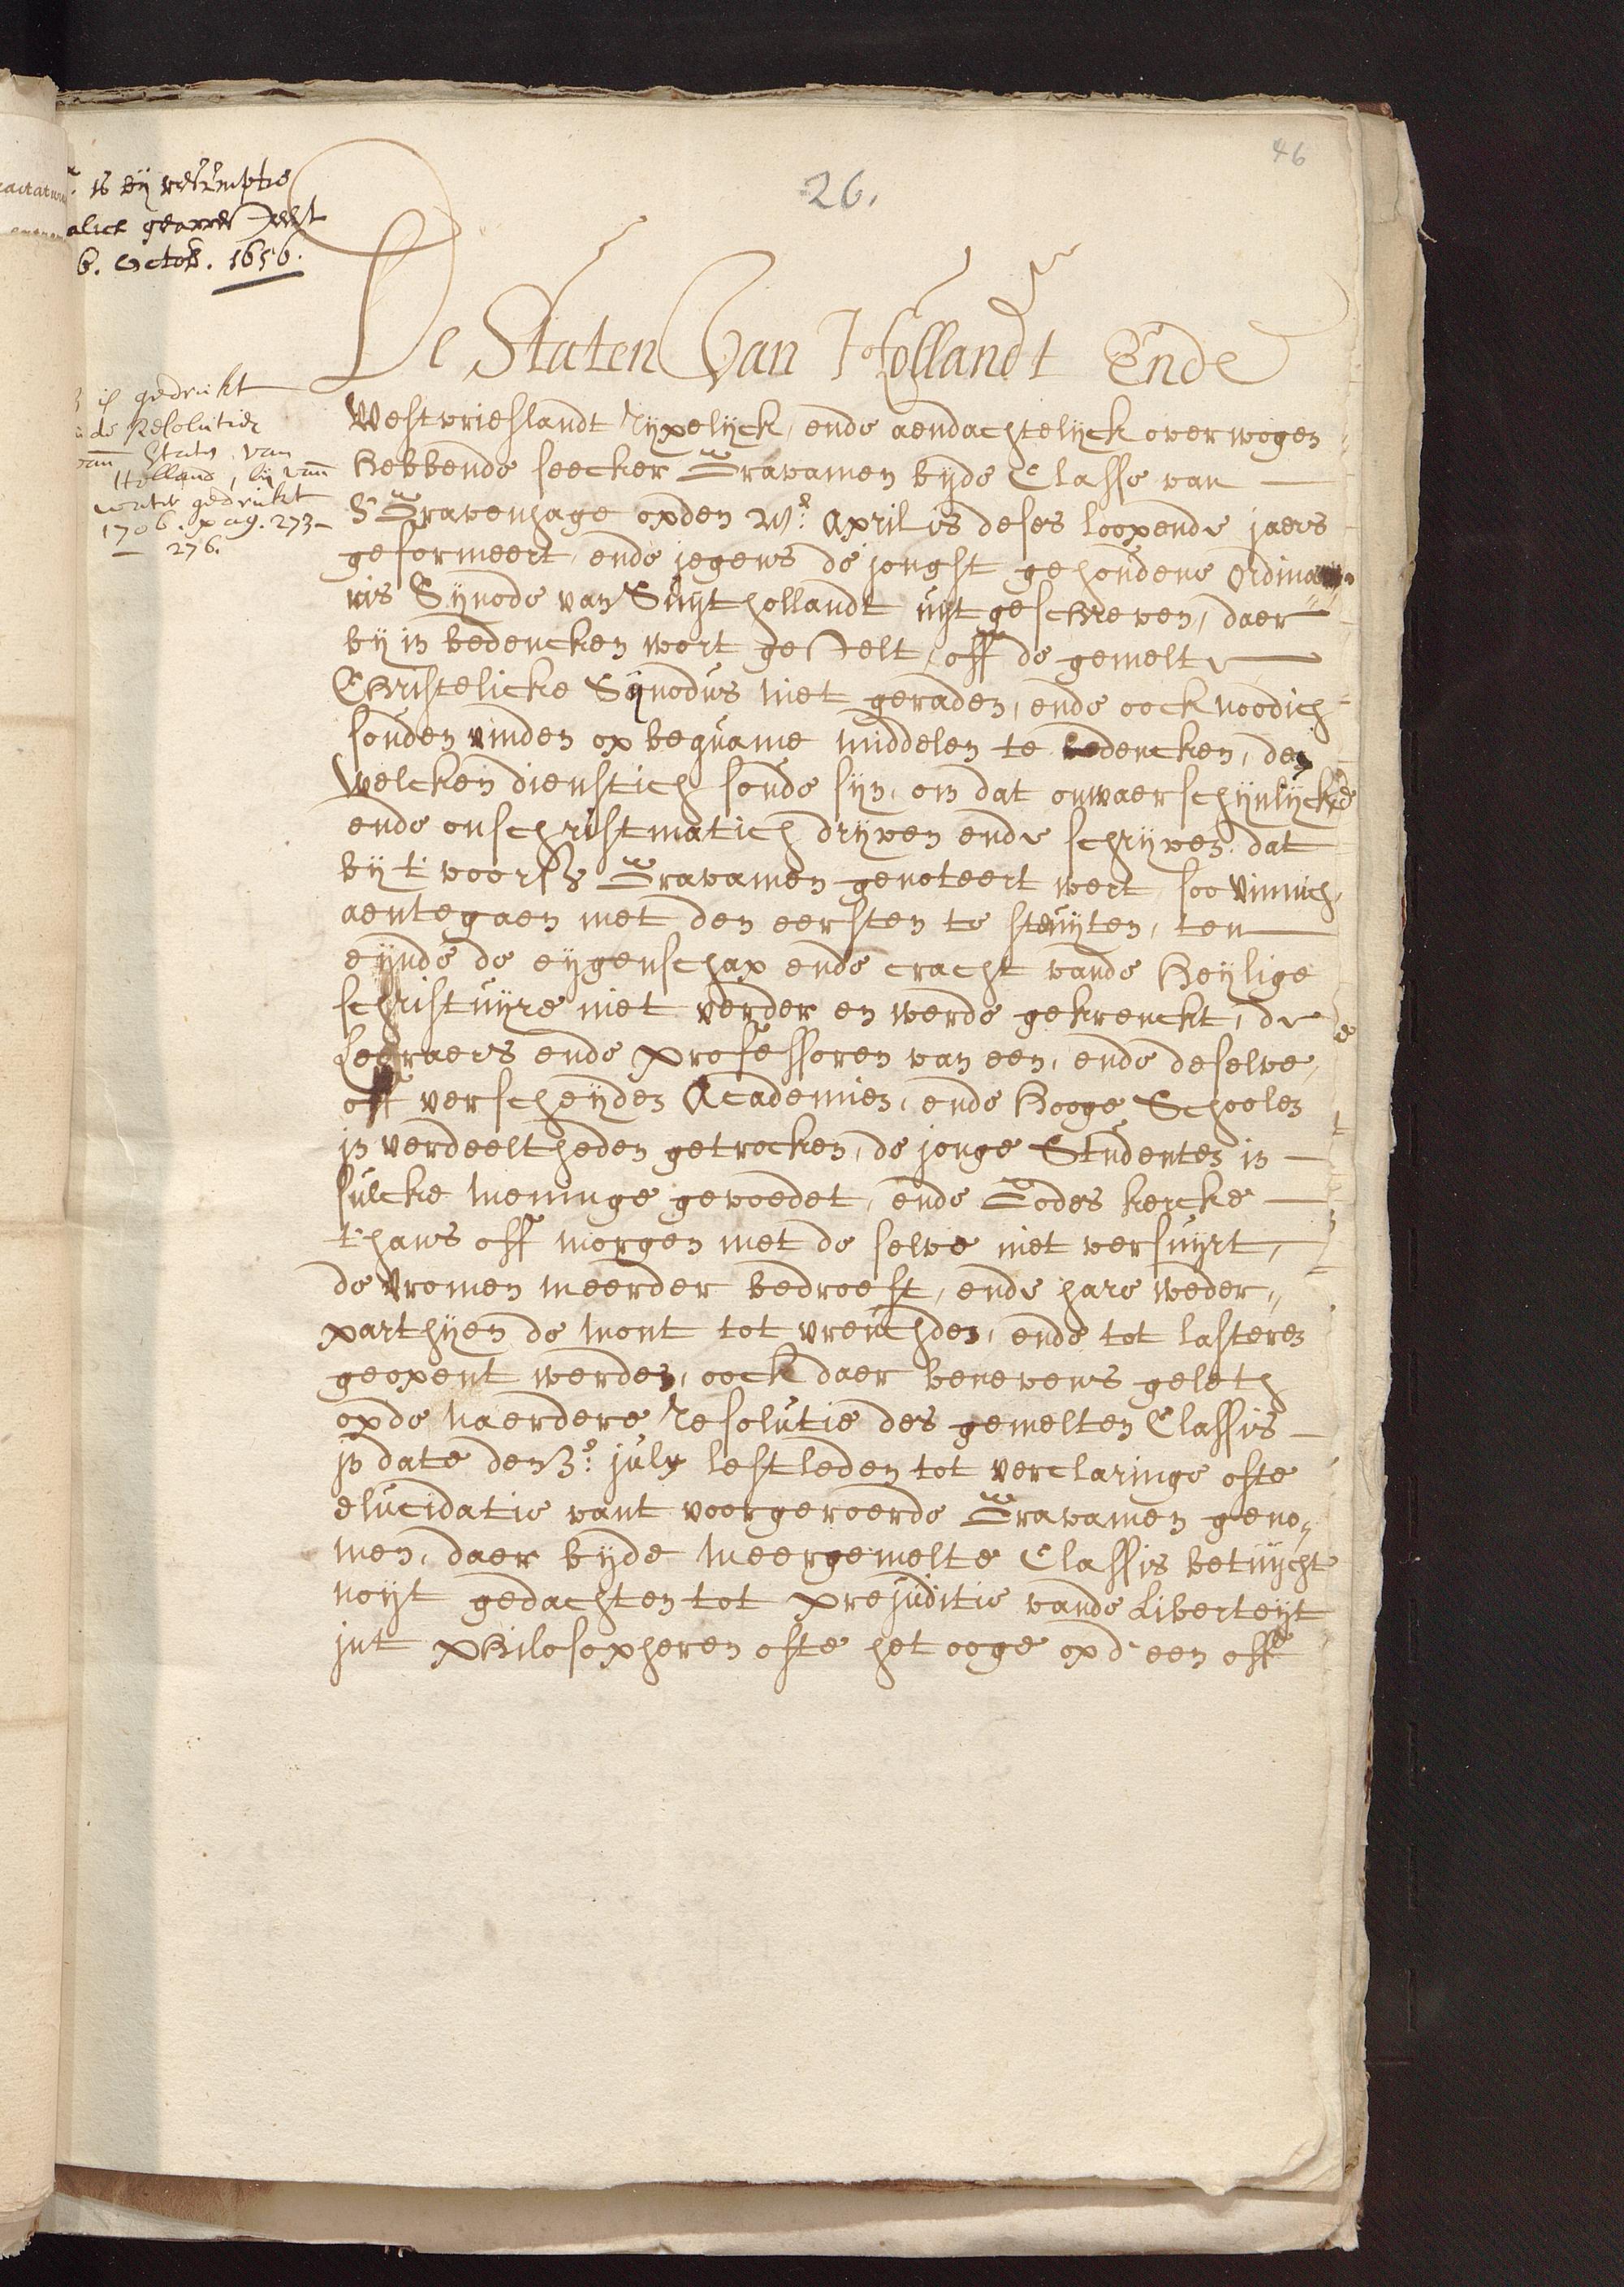 46
26.
is bij resumptie
gearresteert
6. Octob. 1656.
De Staten Van Hollandt Ende
is gedrukt
de Resolutien
van Staten van
Holland, bij
gedrukt
1706. pag. 273-
276.
Westvrieslandt rypelyck, ende aendachtelyck overwogen
hebbende seecker Gravamen byde Classe van
SGravenhage opden April is deses loopende jaers
geformeert, ende jegens de jongst gehoudene Ordina
ris Synode van Suythollandt uytgeschreven, daer
by in bedencken wort gestelt, off de gemelte
Christelicke Synodus niet geraden, ende oock noodich
souden vinden op bequame middelen te bedencken, de
welcken dienstich soude syn, om dat onwaerschynlycke
ende onschriftmatich dryven ende schryven dat
by t' voors Gravamen genoteert wert, soo vinnich
aentegaen met den eersten te stuyten, ten
eynde de eygenschap ende cracht vande Heylige
schriftuyre niet verder en werde gekrenckt, de
Leeraers ende professoren van een, ende deselve
off verscheyden Academien, ende Hooge Schoolen
in verdeeltheden getrocken, de jonge Studenten in
sulcke meninge gevoedet, ende Godes kercke
thans off morgen met de selve niet versuyrt,
de vromen meerder bedroeft, ende hare weder„
parthyen de mont tot vreuchden, ende tot lasteren
geopent werden, oock daer benevens geleth
opde naerdere resolutie des gemelten Classis
in date den 3.e july lestleden tot verclaringe ofte
elucidatie vant voorgeroerde Gravamen geno„
men, daer byde meergemelte Classis betuycht
noyt gedachten tot prejuditie vande Liberteyt
int philosopheren ofte het ooge op d' een off